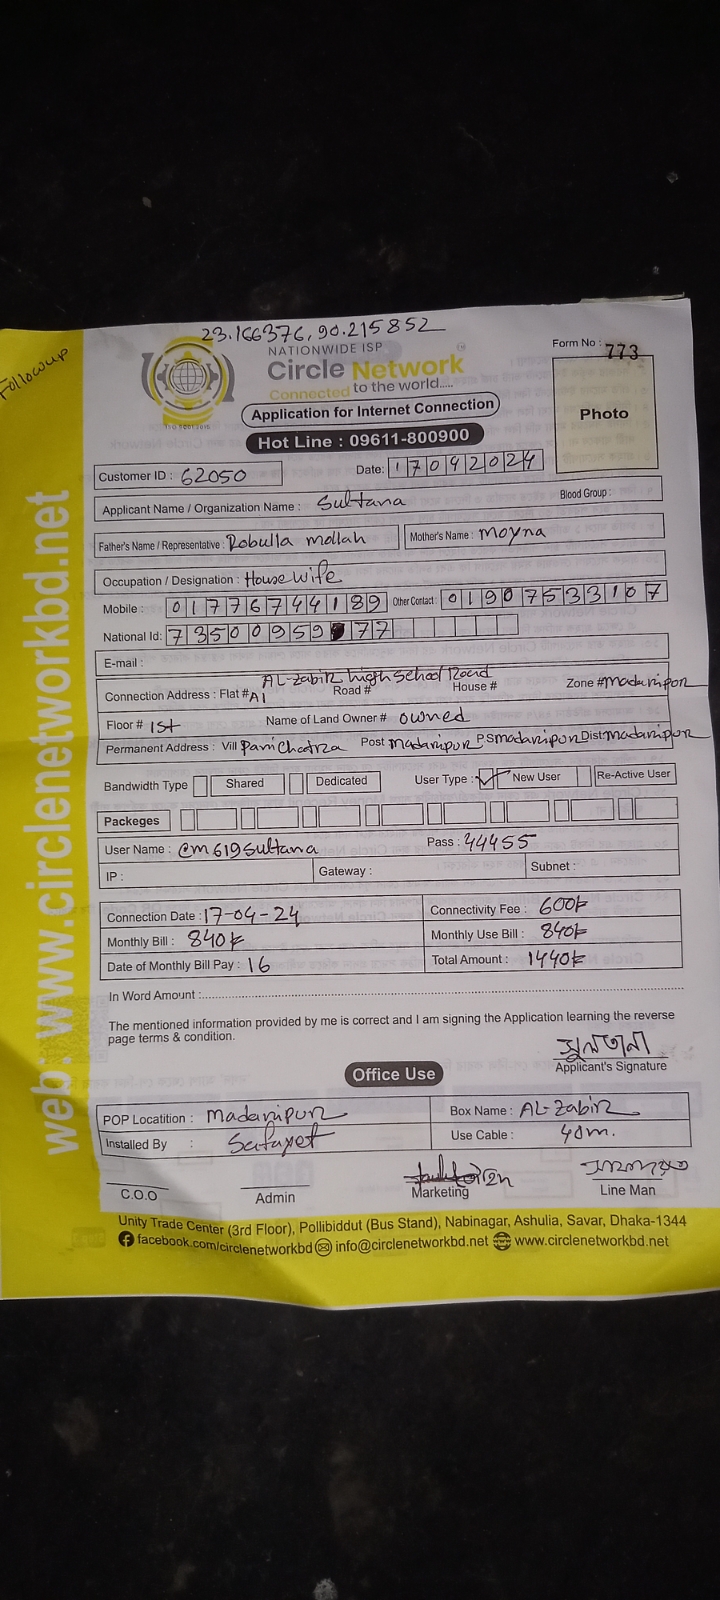 Followup
23.166376, 90.215852
NATIONWIDE ISP
Circle Network
Connected to the world.....
Application for Internet Connection
Hot Line : 09611-800900
Form No : 773
Photo
web: www.circlenetworkbd.net
Customer ID : 62050
Date: 17042024
Applicant Name / Organization Name : Sultana Blood Group :
Father's Name / Representative : Robulla mollah Mother's Name : Moyna
Occupation / Designation : House wife
Mobile : 01776744189 Other Contact : 01907533107
National Id: 7350095977
E-mail :
AL-Zabir high School Road
Connection Address : Flat # A1 Road # House # Zone # madaripor
Floor # 1st Name of Land Owner # owned
Permanent Address : Vill Panichatra Post madaripur PS madaripur Dist madaripur
Bandwidth Type Shared Dedicated User Type : New User Re-Active User
Packeges
User Name : @m619sultana Pass : 44455
IP : Gateway : Subnet :
Connection Date : 17-04-24 Connectivity Fee : 600৳
Monthly Bill : 840৳ Monthly Use Bill : 840৳
Date of Monthly Bill Pay : 16 Total Amount : 1440৳
In Word Amount :
The mentioned information provided by me is correct and I am signing the Application learning the reverse
page terms & condition.
সুলতানা
Applicant's Signature
Office Use
POP Locatition : Madaripur Box Name : AL-Zabir
Installed By : Safayet Use Cable : 40m.
C.O.O Admin Marketing Line Man
Unity Trade Center (3rd Floor), Pollibiddut (Bus Stand), Nabinagar, Ashulia, Savar, Dhaka-1344
facebook.com/circlenetworkbd info@circlenetworkbd.net www.circlenetworkbd.net